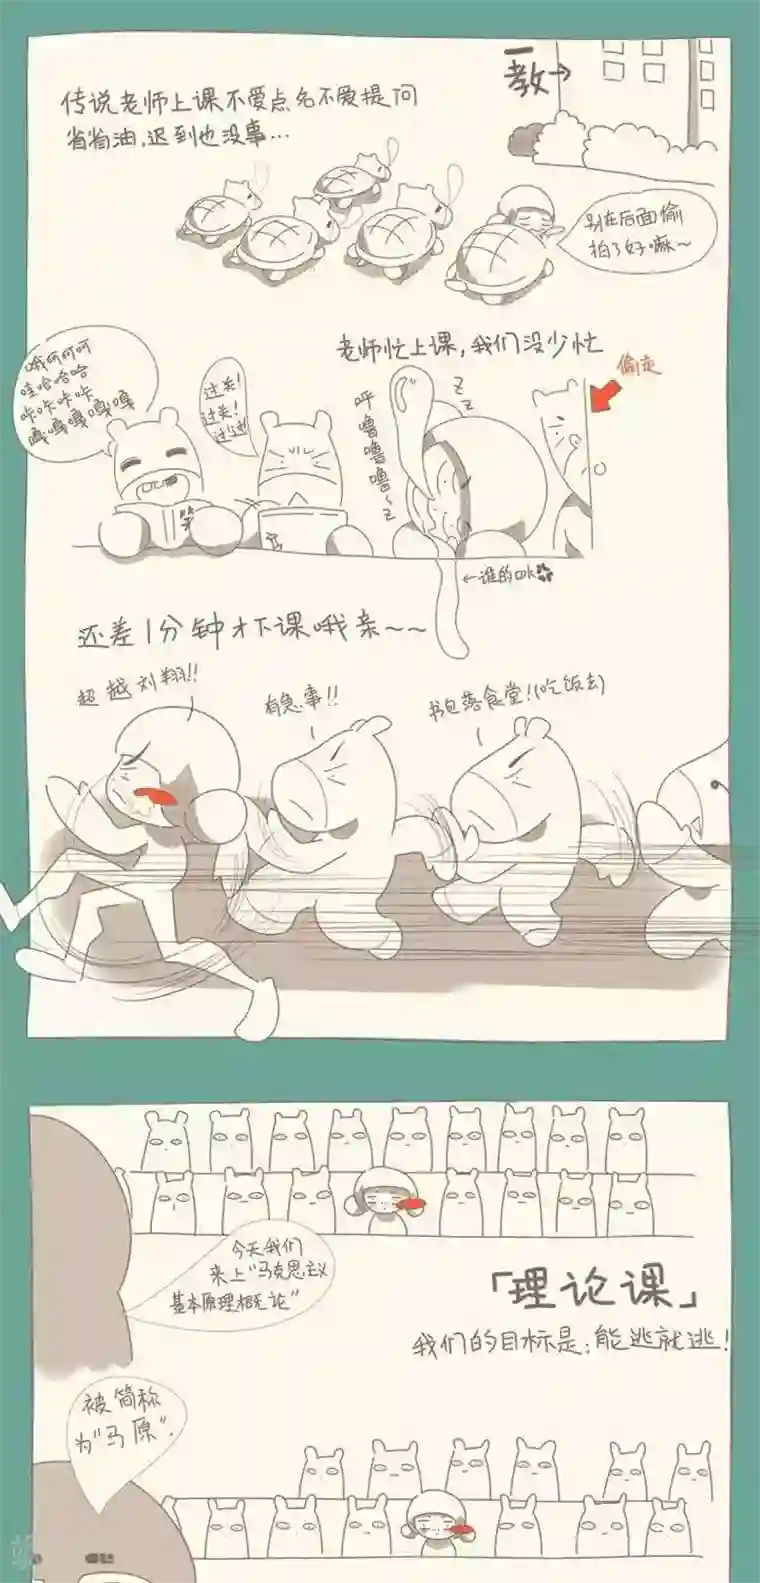 传说老师上课不爱点名不爱提问
省省油,迟到也没事…
一教→
别在后面偷
拍了好嘛~
老师忙上课,我们没少忙
偷走
哦呵呵呵
哇哈哈哈
咔咔咔咔
嘎嘎嘎嘎嘎
过关!
过关!
过过!
笑
呼噜噜噜~zz
zz
←谁的口水
还差1分钟才下课哦亲~~
超越刘翔!!
有急事!!
书包落食堂!(吃饭去)
今天我们
来上"马克思主义
基本原理概论"
「理论课」
我们的目标是:能逃就逃!
被简称
为"马原".